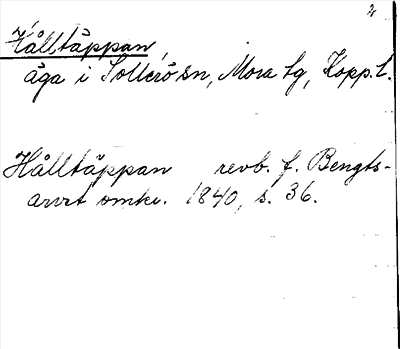 2
Hålltäppan,
äga i Sollerö sn, Mora tg, Kopp.l.
Hålltäppan revb. f. Bengts-
arvet omkr. 1840, s. 36.